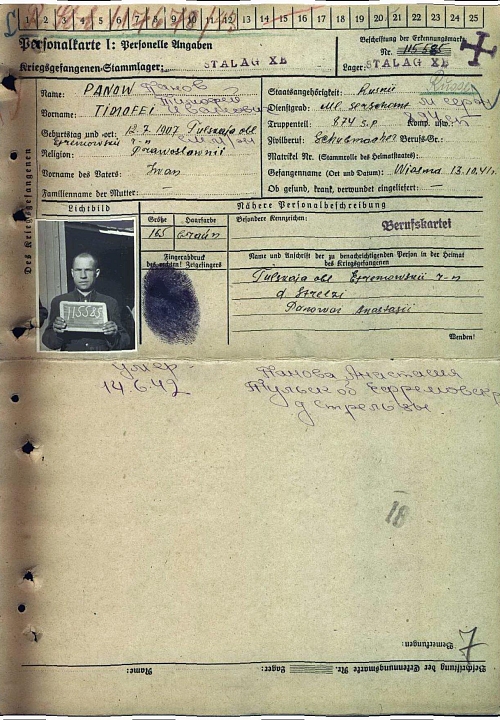 1 2 3 4 5 6 7 8 9 10 11 12 13 14 15 16 17 18 19 20 21 22 23 24 25
Personalkarte I: Personelle Angaben
Beschriftung der Erkennungsmarke
Nr. 115585
Kriegsgefangenen-Stammlager: STALAG XB
Lager: STALAG XB
Des Kriegsgefangenen
Name: PANOW Панов
Vorname: TIMOFEI Тимофей Иванович
Geburtstag und -ort: 12.7.1907 Tulskaja obl
Efremowskii r-n
Religion: Prawoslawnii
Vorname des Vaters: Iwan
Familienname der Mutter: —
Staatsangehörigkeit: Russie
Dienstgrad: Ml. serschant
Truppenteil: 874 s.p Komp. usw.:
Zivilberuf: Schuhmacher Berufs-Gr.:
Matrikel Nr. (Stammrolle des Heimatstaates):
Gefangennahme (Ort und Datum): Wiasma 13.10.41
Ob gesund, krank, verwundet eingeliefert: —
Lichtbild
Nähere Personalbeschreibung
Größe Haarfarbe
165 braun
Besondere Kennzeichen:
Berufskartei
Fingerabdruck
des rechten! Zeigefingers
Name und Anschrift der zu benachrichtigenden Person in der Heimat
des Kriegsgefangenen
Tulskaja obl Efremowskii r-n
d. Strelzi
Panowa Anastasii
115585
Wenden!
умер
14.6.42
Панова Анастасия
Тульск об Ефремовск
д Стрельцы
18
7
Bemerkungen:
Beschriftung der Erkennungsmarke Nr. Lager: Name: